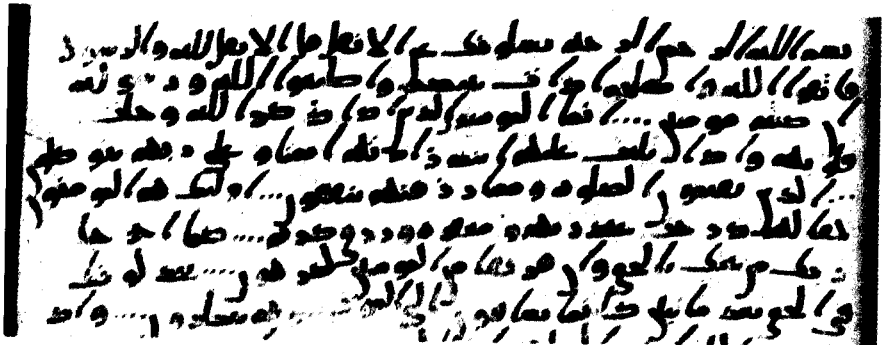 بسم الله الرحمن الرحيم يسلونك عن الانفل قل الانفل لله والرسول
فاتقوا الله واصلحوا ذات بينكم واطيعوا الله ورسوله
ان كنتم مومنين .... انما المومنون الذين اذا ذكر الله وجلت
قلوبهم واذا تليت عليهم ايته زادتهم ايمنا وعلى ربهم يتوكلو
ن ... الذين يقيمون الصلوة ومما رزقنهم ينفقون ... اولئك هم المومنون
حقا لهم درجت عند ربهم ومغفرة ورزق كريم .... كما اخرجك
ربك من بيتك بالحق وان فريقا من المومنين لكرهون .... يجدلونك
في الحق بعد ما تبين كانما يساقون الى الموت وهم ينظرون .... واذ